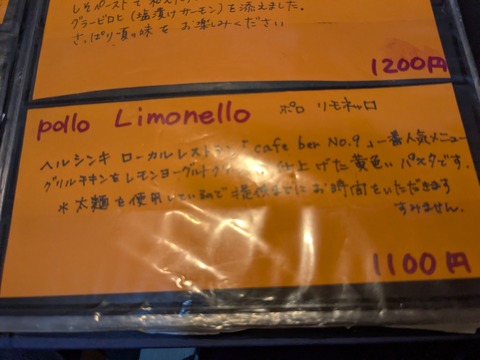 グラービロヒ(塩漬けサーモン)を添えました。
さっぱり頂の味をお楽しみください
1200円
pollo Limonello ポロ リモネッロ
ヘルシンキ ローカルレストラン「cafe bar No.9」一番人気メニュー
グリルチキンをレモンヨーグルト 仕上げた黄色いパスタです。
※太麺を使用しているので提供までにお時間をいただきます
すみません。
1100円